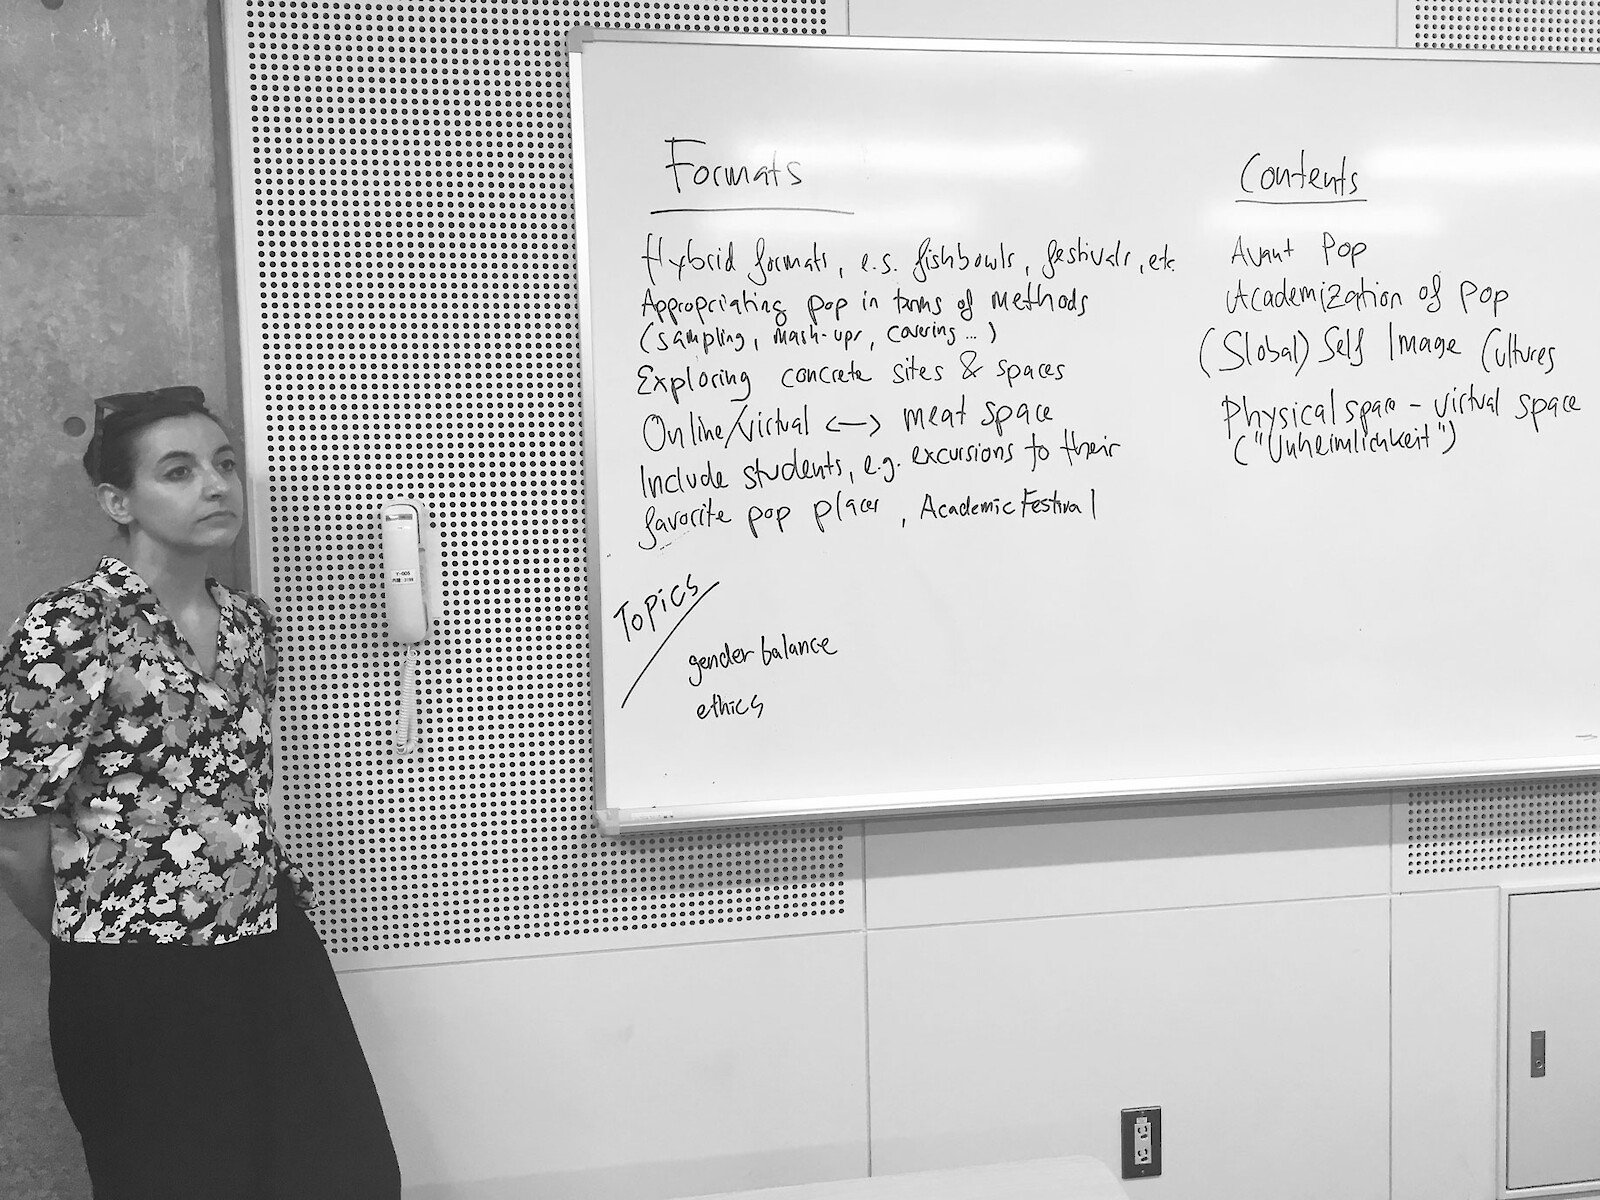 Formats
Hybrid formats, e.g. fishbowls, festivals, etc.
Appropriating pop in terms of methods
(sampling, mash-ups, covering...)
Exploring concrete sites & spaces
Online/virtual <—> meat space
Include students, e.g. excursions to their
favorite pop places, Academic Festival
Topics
gender balance
ethics
Contents
Avant Pop
Academization of Pop
(Global) Self Image Cultures
Physical space - virtual space
("Unheimlichkeit")
Y-005